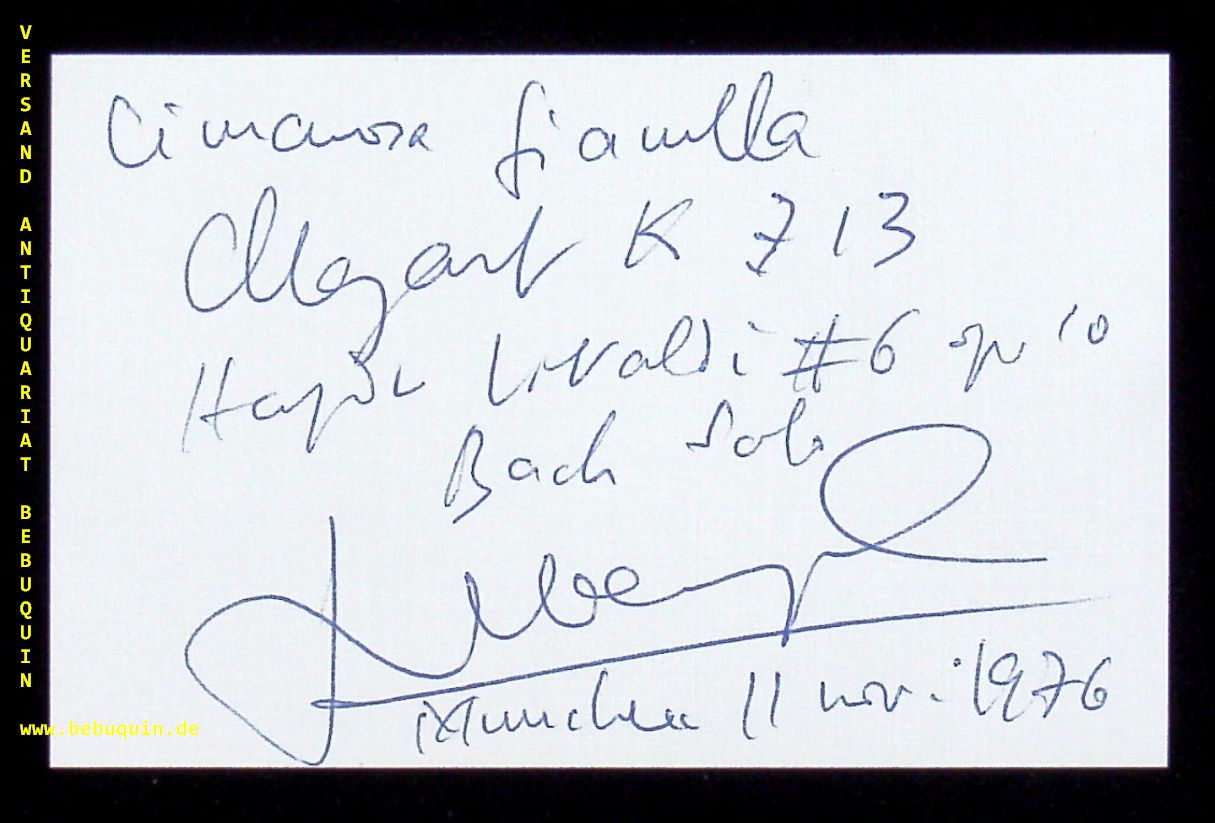 VERSAND ANTIQUARIAT BEBUQUIN
www.bebuquin.de
Cimarosa Gianella
Mozart K 313
Haydn Vivaldi #6 op 10
Bach Solo
München 11 nov. 1976